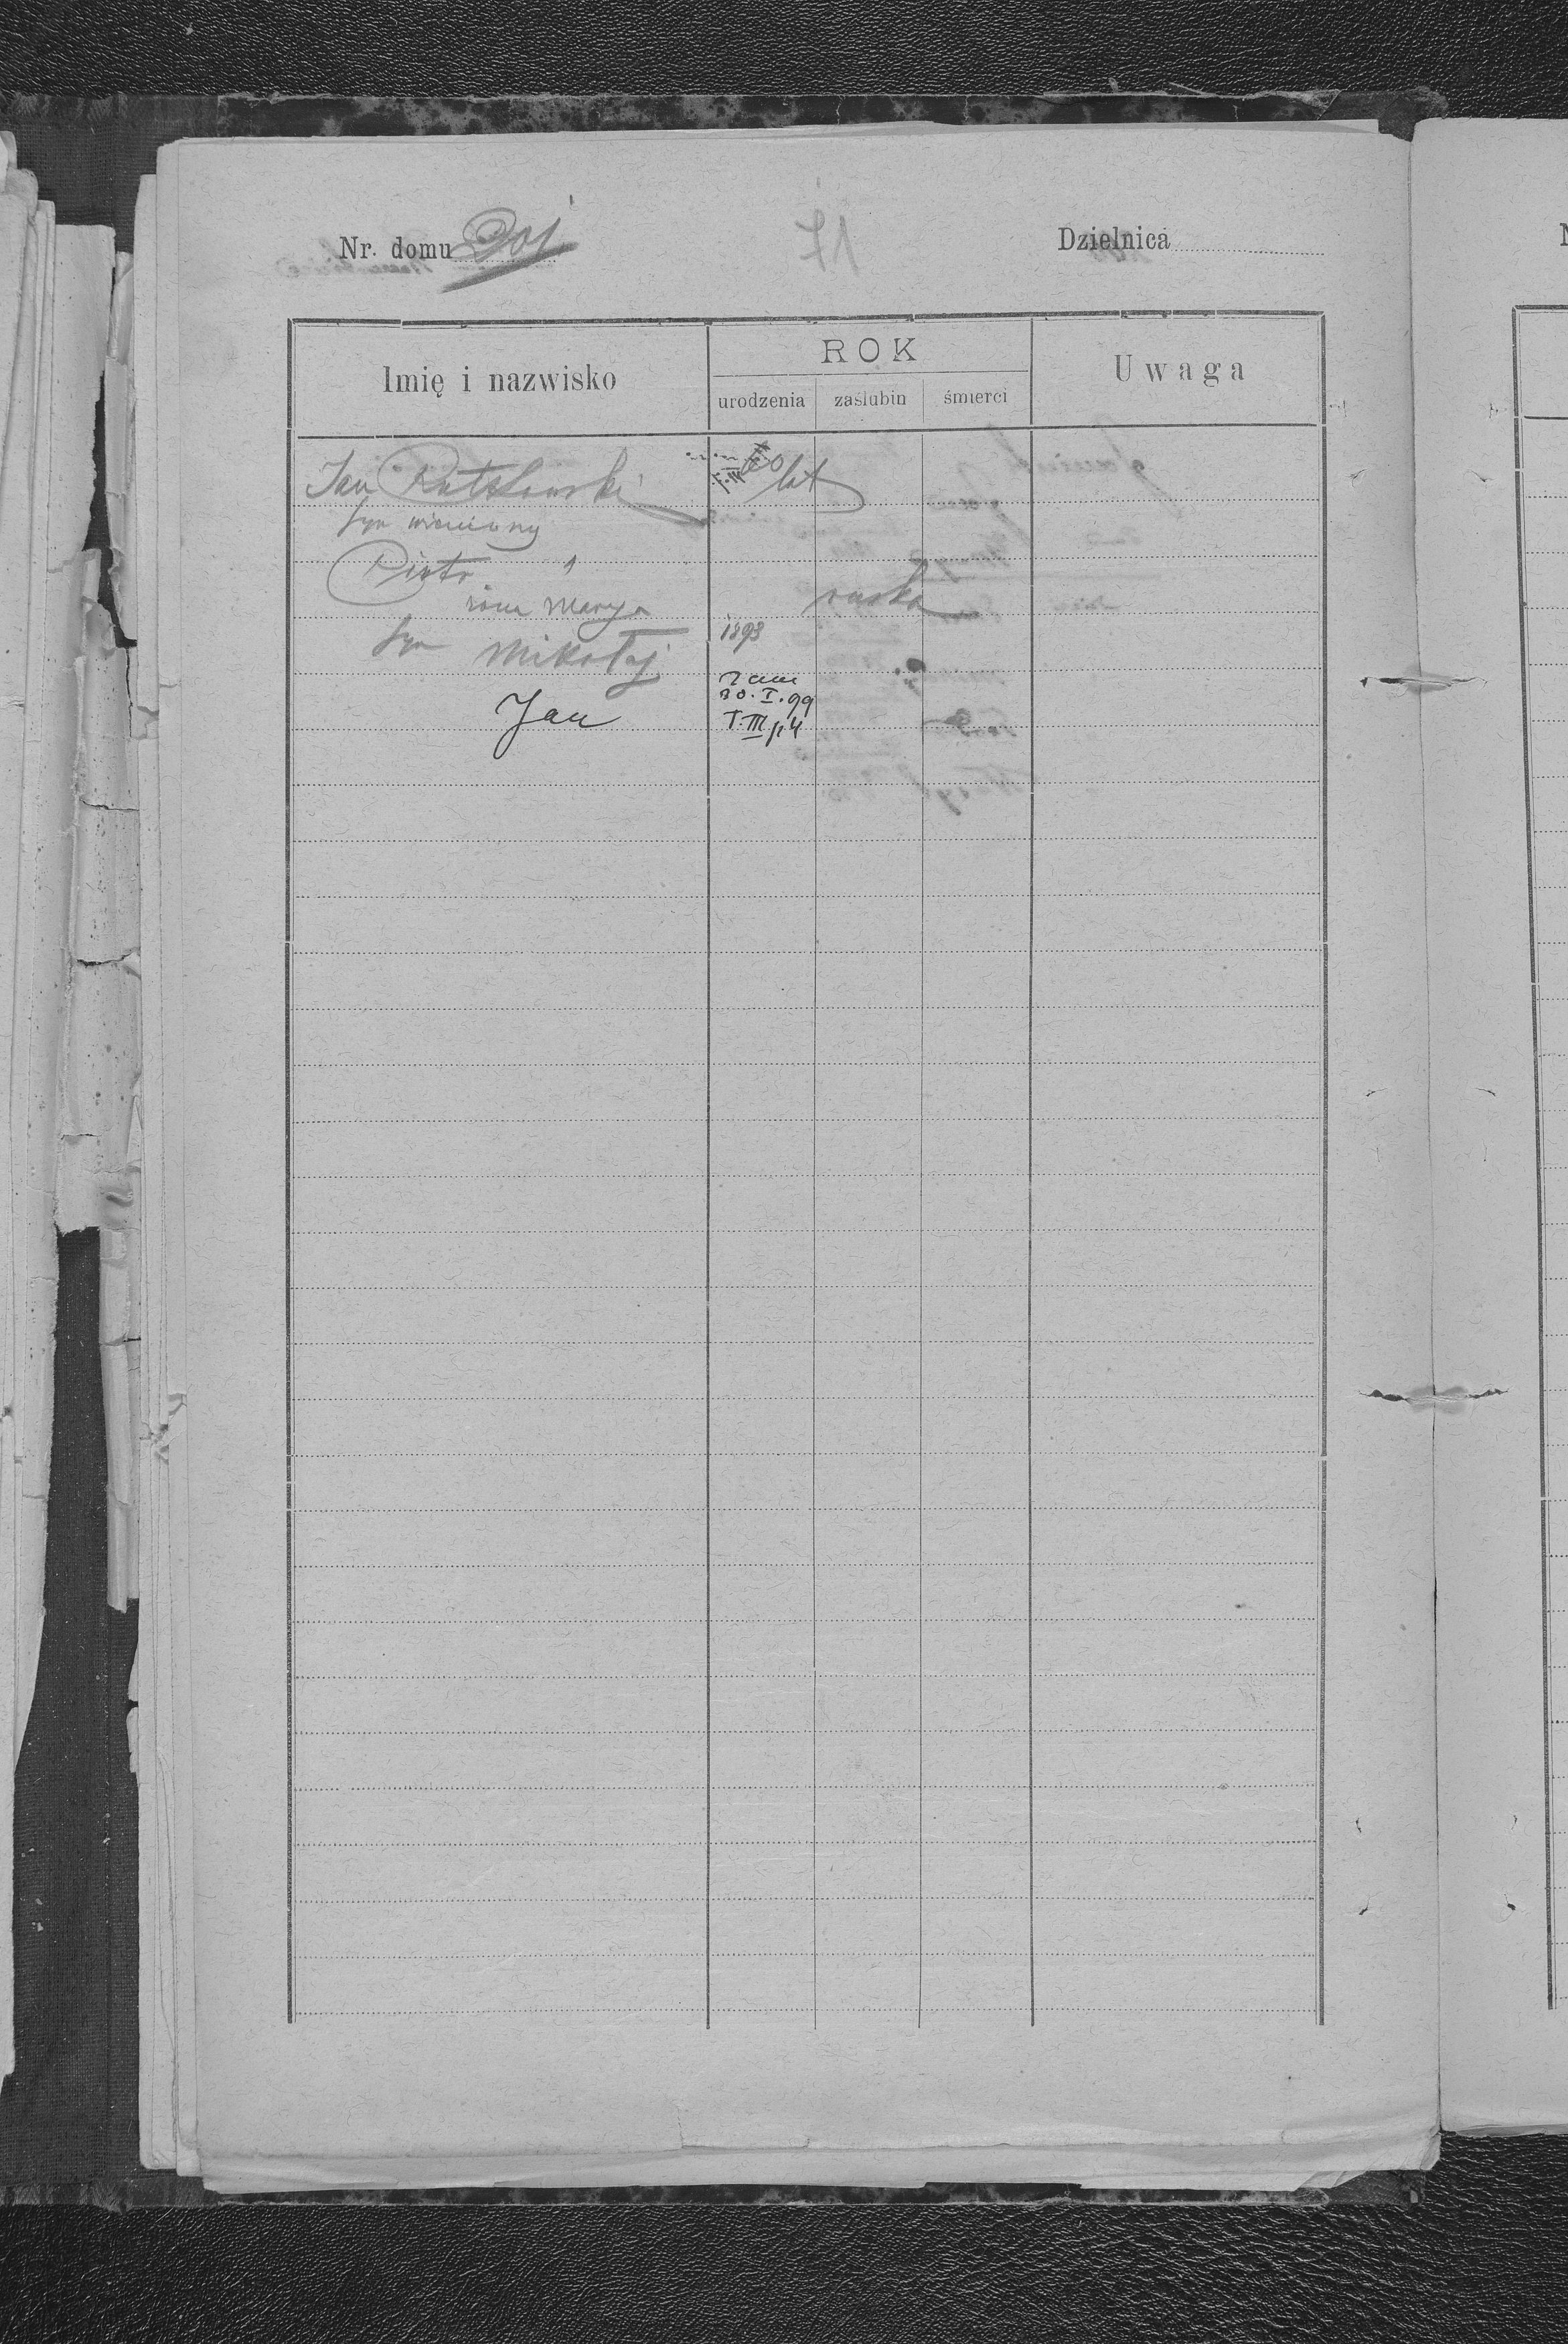 Nr. domu 201
Dzielnica
Imię i nazwisko
ROK
urodzenia zaślubin śmierci
Uwaga
Jan Rutkowski 60 lat
syn
Piotr
żona Marya ruska
syn Mikołaj 1893
Jan 30. I. 99
T. III p 4